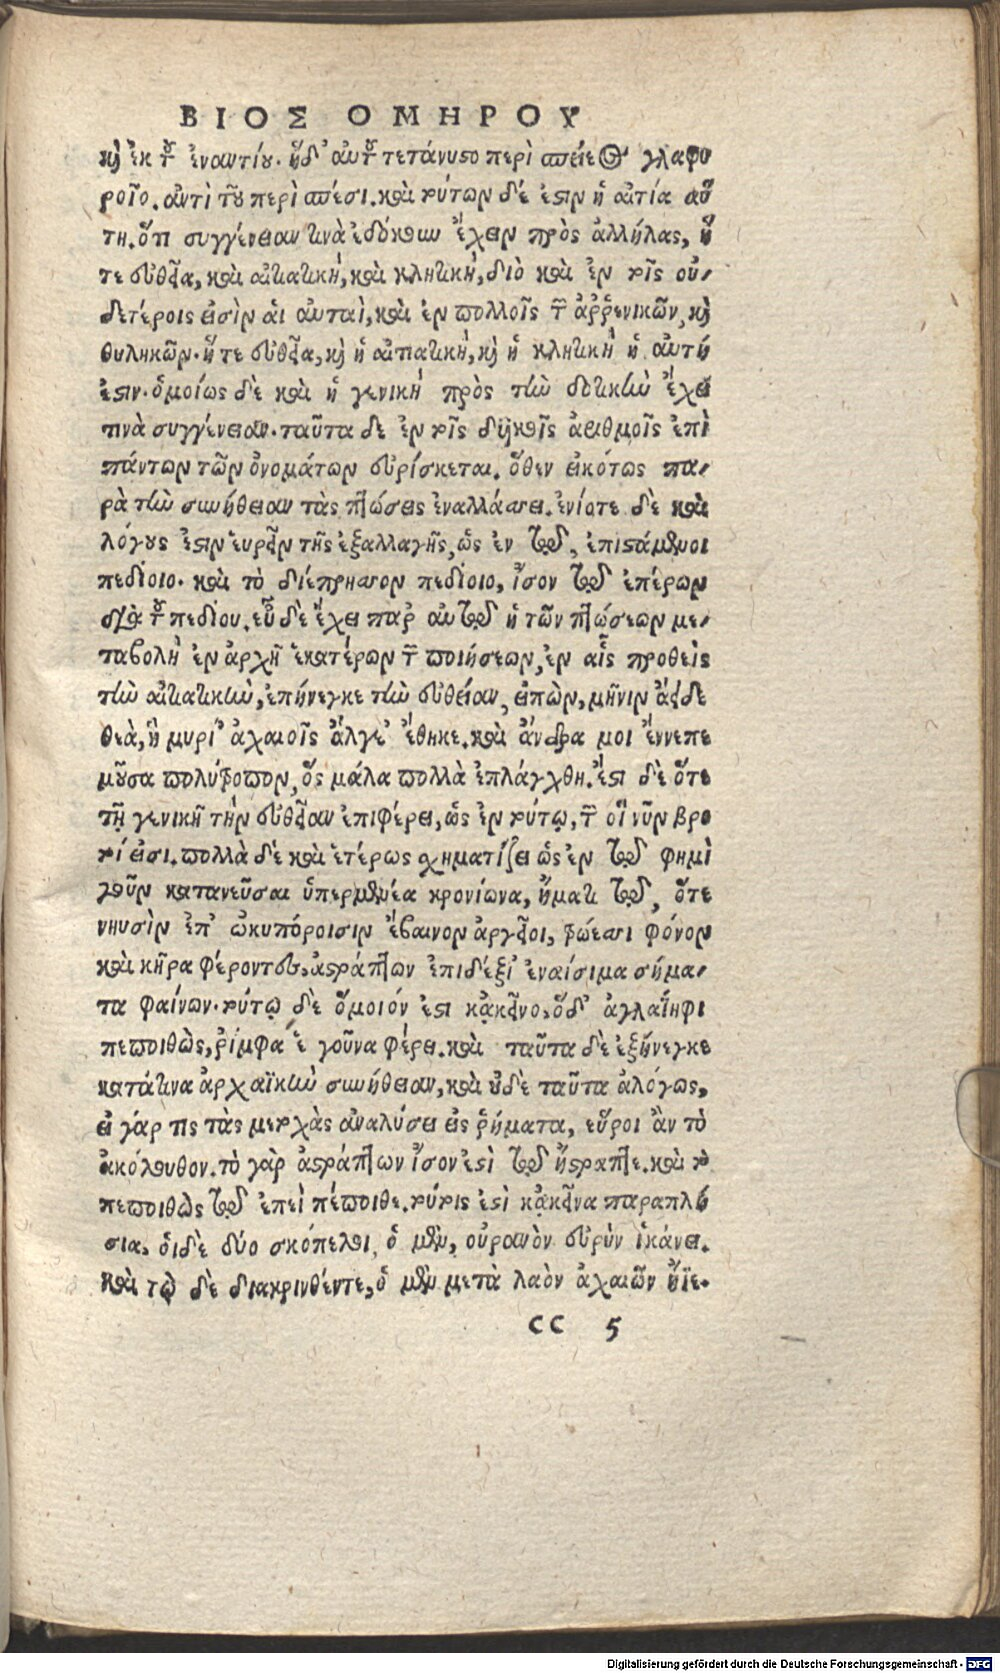 ΒΙΟΣ ΟΜΗΡΟΥ
καὶ ἐκ τοῦ ἐναντίου. ἡδ' αὐτοῦ τετάνυστο περὶ σπείους γλαφυ
ροῖο. ἀντὶ τοῦ περὶ σπέσι. καὶ τούτων δέ ἐστιν ἡ αἰτία αὕ
τη. ὅτι συγγένειαν τινὰ ἐδόκουν ἔχειν πρὸς ἀλλήλας, ἥ
τε εὐθεῖα, καὶ αἰτιατικὴ, καὶ κλητικὴ, διὸ καὶ ἐν τοῖς οὐ-
δετέροις εἰσὶν ἁι αὐταὶ, καὶ ἐν πολλοῖς τῶν ἀῤῥενικῶν, καὶ
θυληκῶν. ἥ τε εὐθεῖα, καὶ ἡ αἰτιατικὴ, καὶ ἡ κλητικὴ ἡ αὐτή
ἐστιν. ὁμοίως δὲ καὶ ἡ γενικὴ πρὸς τὴν δοτικὴν ἔχει
τινὰ συγγένειαν. ταῦτα δε ἐν τοῖς δυϊκοῖς ἀριθμοῖς ἐπὶ
πάντων τῶν ὀνομάτων εὑρίσκεται. ὅθεν εἰκότως πα-
ρὰ τὴν συνήθειαν τὰς πτώσεις ἐναλλάσσει. ἐνίοτε δὲ καὶ
λόγους ἐστιν ἑυρεῖν τῆς ἐξαλλαγῆς, ὡς ἐν τῷ, ἐπιστάμενοι
πεδίοιο. καὶ τὸ διέπρησσον πεδίοιο, ἶσον τῷ ἐπέρων
διὰ τοῦ πεδίου. εὖ δὲ ἔχει παρ αὐτῷ ἡ τῶν πτώσεων με-
ταβολὴ ἐν ἀρχῇ ἑκατέρων τῶν ποιήσεων, ἐν αἷς προθεὶς
τὴν αἰτιατικὴν, ἐπήνεγκε τὴν εὐθείαν, εἰπὼν, μῆνιν ἄειδε
θεὰ, ἣ μυρί' ἀχαιοῖς ἄλγε' ἔθηκε. καὶ ἄνδρα μοι ἔννεπε
μοῦσα πολύτροπον, ὃς μάλα πολλὰ ἐπλάγχθη. ἔστι δὲ ὅτε
τῇ γενικῇ τὴν εὐθεῖαν ἐπιφέρει, ὡς ἐν τούτῳ, τῶν οἳ νῦν βρο
τοί εἰσι. πολλὰ δὲ καὶ ἑτέρως σχηματίζει ὡς ἐν τῷ φημὶ
γοῦν κατανεῦσαι ὑπερμενέα κρονίωνα, ἤματι τῷ, ὅτε
νηυσὶν ἐπ' ὠκυπόροισιν ἔβαινον ἀργεῖοι, τρώεσσι φόνον
καὶ κῆρα φέροντες. ἀστράπτων ἐπιδέξι' ἐναίσιμα σήμα-
τα φαίνων. τούτῳ δὲ ὅμοιόν ἐστι κᾀκεῖνο. ὅδ' ἀγλαΐηφι
πεποιθὼς, ῥίμφα ἑ γοῦνα φέρει. καὶ ταῦτα δὲ ἐξήνεγκε
κατά τινα ἀρχαϊκὴν συνήθειαν, καὶ οὐδὲ ταῦτα ἀλόγως,
εἰ γάρ τις τὰς μετοχὰς ἀναλύσει εἰς ῥήματα, εὕροι ἂν τὸ
ἀκόλουθον. τὸ γὰρ ἀστράπτων ἶσον ἐστὶ τῷ ἤστραπτε. καὶ τὸ
πεποιθὼς τῷ ἐπεὶ πέποιθε. τούτοις ἐστὶ κᾀκεῖνα παραπλή
σια. ὁιδὲ δύο σκόπελοι, ὁ μὲν, οὐρανὸν εὐρὺν ἱκάνει.
καὶ τὼ δὲ διακρινθέντε, ὁ μὲν μετὰ λαὸν ἀχαιῶν ἤϊε.
CC 5
Digitalisierung gefördert durch die Deutsche Forschungsgemeinschaft - DFG